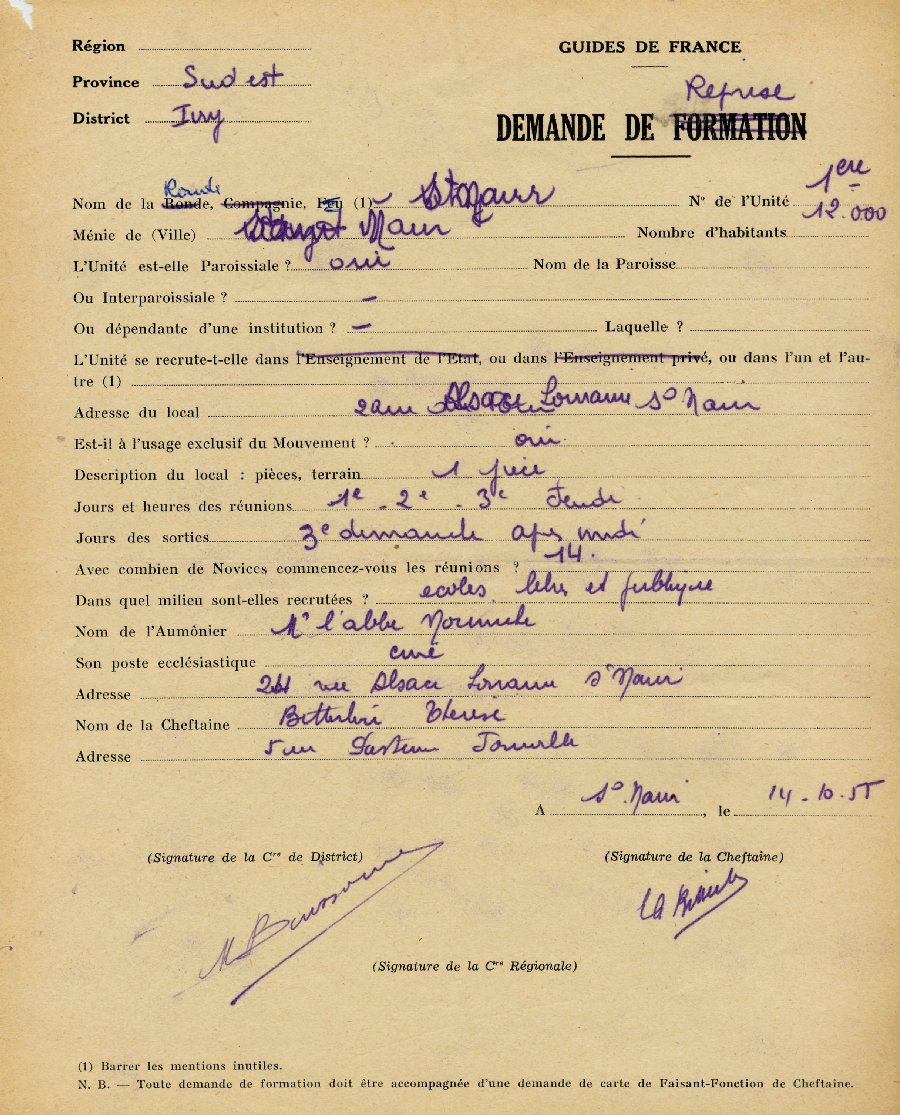 Région
Province Sud est
District Ivry
GUIDES DE FRANCE
Reprise
DEMANDE DE FORMATION
Ronde
Nom de la Ronde, Compagnie, Feu (1) St Maur N° de l'Unité 1ère
Ménie de (Ville) Maur Nombre d'habitants 12.000
L'Unité est-elle Paroissiale ? oui Nom de la Paroisse
Ou Interparoissiale ? —
Ou dépendante d'une institution ? — Laquelle ?
L'Unité se recrute-t-elle dans l'Enseignement de l'Etat, ou dans l'Enseignement privé, ou dans l'un et l'au-
tre (1)
Adresse du local Alsace Lorraine St Maur
Est-il à l'usage exclusif du Mouvement ? oui
Description du local : pièces, terrain 1 pièce
Jours et heures des réunions 1e - 2e - 3e Jeudi
Jours des sorties 3e dimanche après midi
Avec combien de Novices commencez-vous les réunions ? 14.
Dans quel milieu sont-elles recrutées ? ecoles libres et publique
Nom de l'Aumônier Mr l'abbé
Son poste ecclésiastique curé
Adresse rue Alsace Lorraine St Maur
Nom de la Cheftaine Thérèse
Adresse 5 rue Pasteur Joinville
A St. Maur, le 14-10-55
(Signature de la Cre de District)
(Signature de la Cheftaine)
(Signature de la Cre Régionale)
(1) Barrer les mentions inutiles.
N. B. — Toute demande de formation doit être accompagnée d'une demande de carte de Faisant-Fonction de Cheftaine.